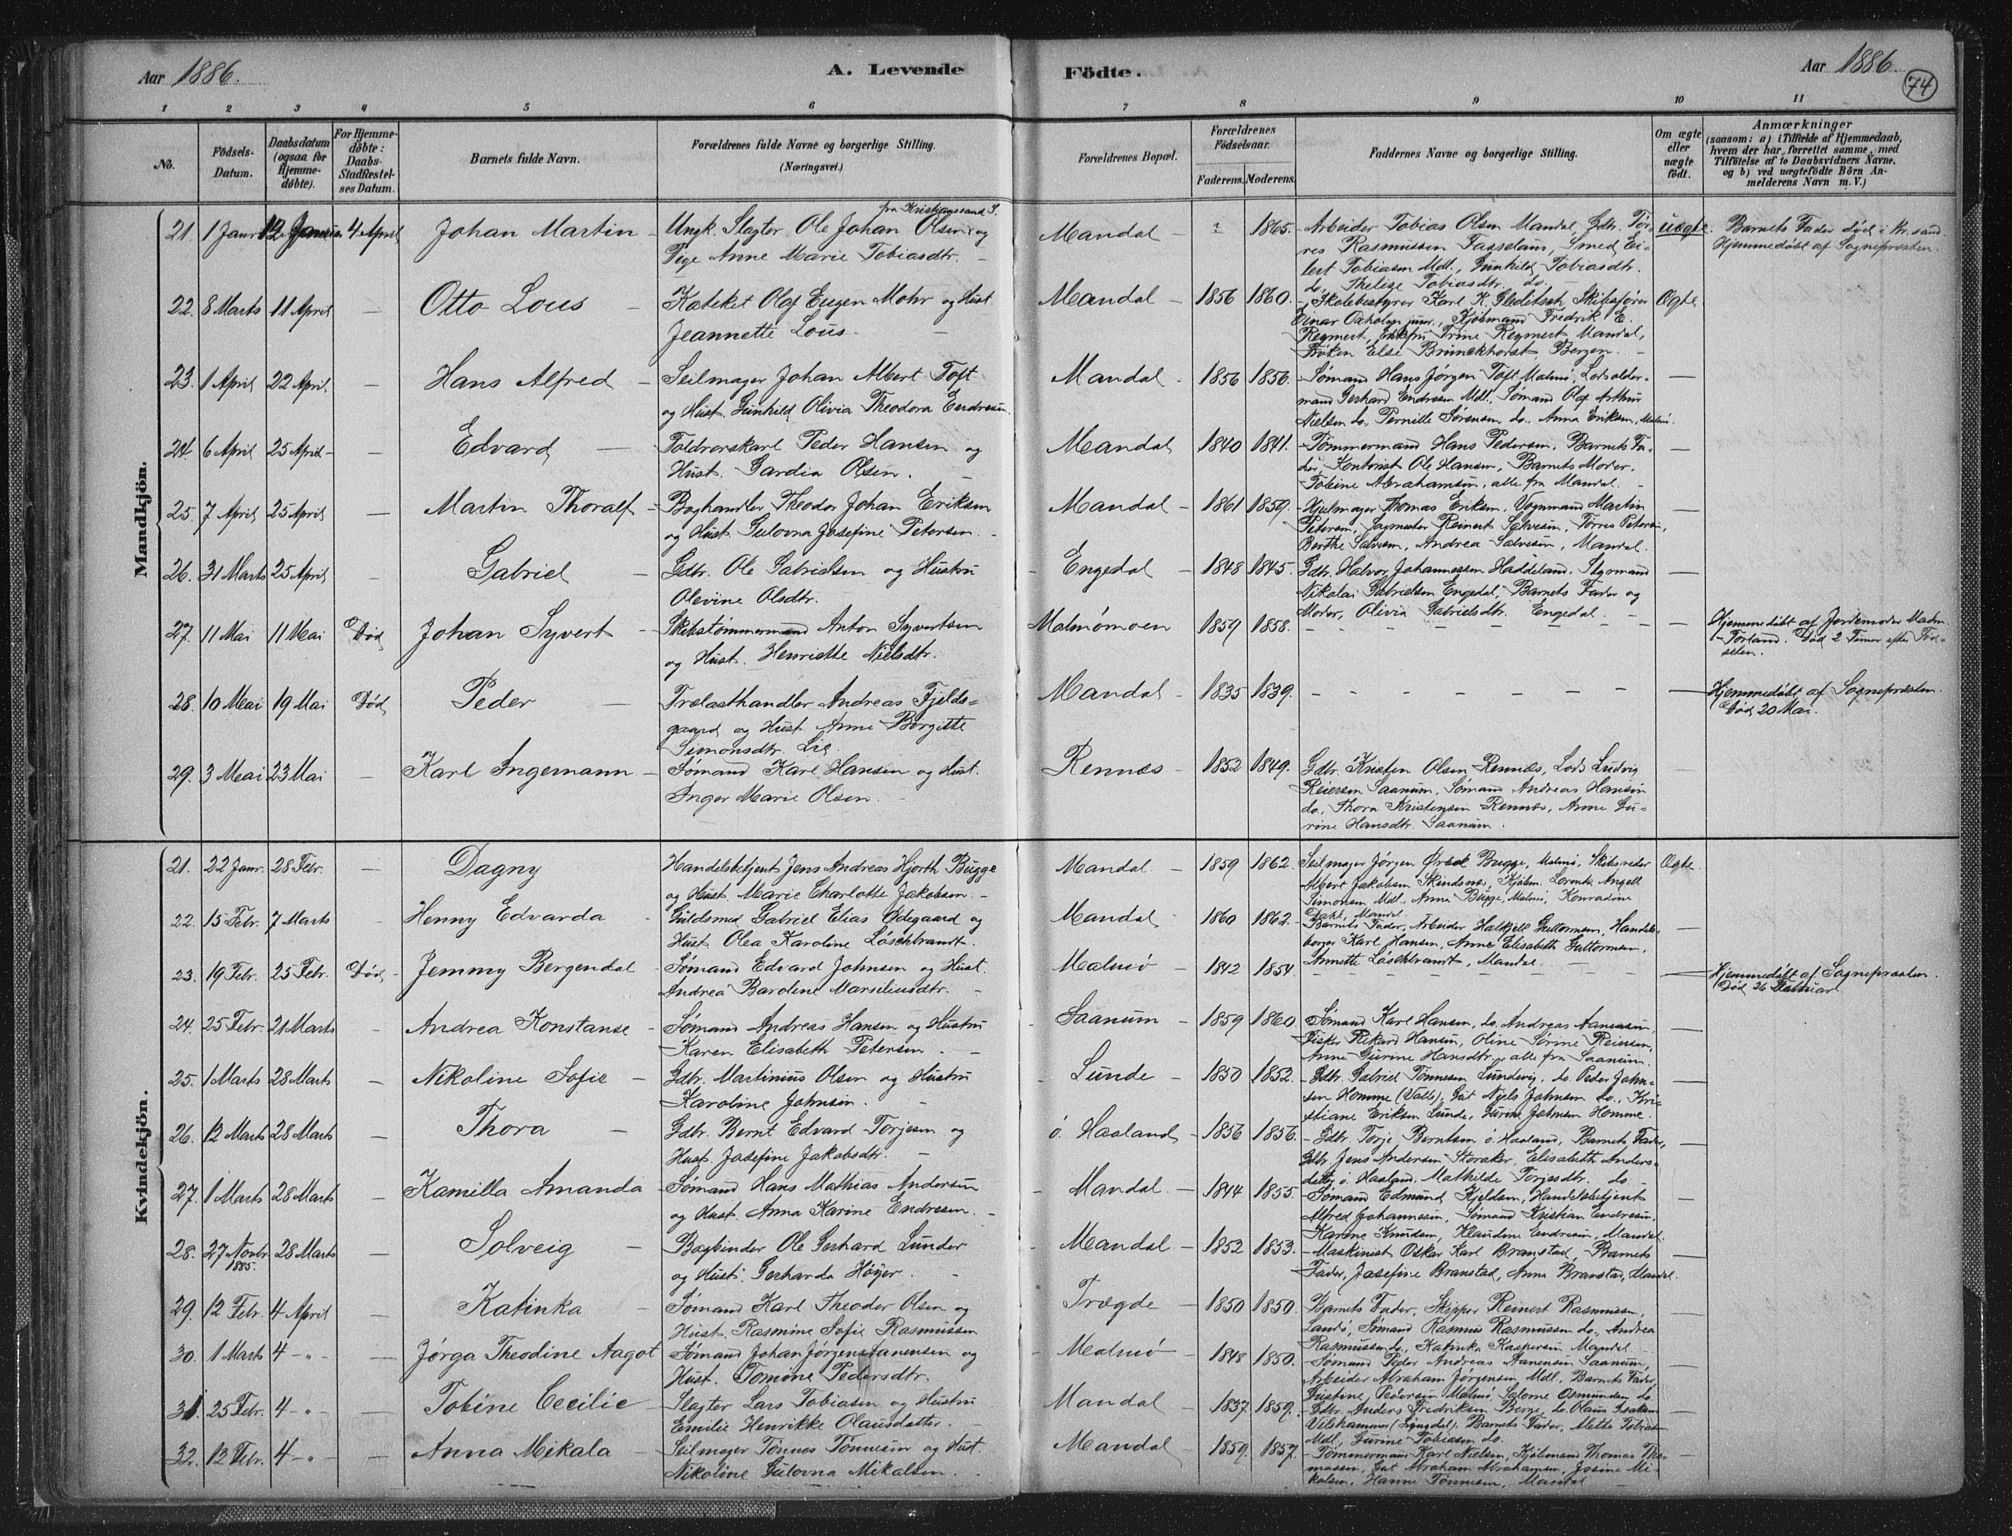 Aar 1886. A. Levende Födte. Aar 1886. 74
1 2 3 4 5 6 7 8 9 10 11
No. Födsels-Datum. Daabsdatum (ogsaa for Hjemmedöbte). For Hjemmedöbte: Daabs-Stadfæstelses Datum. Barnets fulde Navn. Forældrenes fulde Navne og borgerlige Stilling. (Næringsvei.) Forældrenes Bopæl. Forældrenes Födselsaar. Faderens. Moderens. Faddernes Navne og borgerlige Stilling. Om ægte eller uægte födt. Anmærkninger (saasom: a) i Tilfælde af Hjemmedaab, hvem der har forrettet samme, med Tilföielse af to Daabsvidners Navne, og b) ved uægtefödte Börn Anmelderens Navn m. V.)
Mandkjön.
21. 1 Janr 12 Januar 4 April Johan Martin Ungk. Slagter Ole Johan Olsen fra Kristianssand S. og Mandal 1865. Arbeider Tobias Olsen Mandal, Gdr. Tør- uægte Barnets Fader död i Kr.sand.
Pige Anne Marie Tobiasdtr. res Rasmussen Fasseland, Smed Ei- Hjemmedöbt af Sognepresten.
lert Tobiasen Mdl., Gunhild Tobiasdtr.
do, Tobiasdtr do.
22. 8 Marts 11 April — Otto Lous Kateket Olaf Eugen Mohr og Hust. Mandal 1856 1860. Skolebestyrer Karl K. Gleditsch, Skibsfører Ægte
Jeannette Lous. Einar junr., Kjøbmand Fredrik E.
Reymert, Trine Reymert Mandal,
Frøken Else Brunckhorst, Bergen.
23. 1 April 22 April — Hans Alfred Seilmager Johan Albert Toft Mandal 1856 1856. Sømand Hans Jørgen Toft Malmö, Lodsolder-
og Hust. Gunhild Olivia Theodora Endresen. mand Gerhard Endresen Mdl. Sømand Olaf Arthur
Nielsen do, Pernille Sørensen do, Anna Eriksen, Malmö.
24. 6 April 25 April — Edvard Toldrorskarl Peder Hansen og Mandal 1840 1841. Tømmermand Hans Pedersen, Barnets Fa-
Hust. Gardia Olsen. der, Ole Hansen, Barnets Moder,
Tobine Abrahamsen, alle fra Mandal.
25. 7 April 25 April — Martin Thoralf Boghandler Theodor Johan Eriksen Mandal 1861 1859. Hjulmager Thomas Eriksen, Vognmand Martin
og Hust. Gulovna Josefine Petersen. Petersen, Reinert Salvesen, Tørris Petersen,
Berthe Salvesen, Andrea Salvesen, Mandal.
26. 31 Marts 25 April — Gabriel Gdbr. Ole Gabrielsen og Hustru Engedal 1848 1845. Gdbr. Halvor Johannessen Haddeland, Styrmand
Olevine Olsdtr. Nikolai Gabrielsen Engedal, Barnets Fader og
Moder, Olivia Gabrielsdtr. Engedal.
27. 11 Mai 11 Mai Död Johan Syvert Skibstømmermand Anton Syvertsen Malmömoen 1859 1858. Hjemmedöbt af Jordemoder Madm.
og Hust. Henriette Nielsdtr. Torland. Död 2 Timer efter Föd-
selen.
28. 10 Mai 19 Mai Död Peder Trælasthandler Andreas Fjelds- Mandal 1835 1839. Hjemmedöbt af Sognepresten.
gaard og Hust. Anne Bergitte Död 20 Mai.
Simonsdtr. Lie.
29. 3 Mai 23 Mai — Karl Ingemann Sømand Karl Hansen og Hust. Rennes 1852 1849. Gdbr. Kristen Olsen Rennes, Lods Ludvig
Inger Marie Olsen. Reiersen Saanum, Sømand Andreas Hansen
do, Thora Kristensen Rennes, Anne Gu-
rine Hansdtr. Saanum.
Kvindekjön.
21. 22 Janr. 28 Febr. — Dagny Handelsbetjent Jens Andreas Hjorth Bugge Mandal 1859 1862. Seilmager Jørgen Bugge, Malmö, Skibsreder Ægte
og Hust. Marie Charlotte Jakobsen. Albert Jakobsen Skindsnes, Kjøbm. Lorentz Angell
Simonsen Mdl. Anna Bugge, Malmö, Konradine
Dahl, Mandal.
22. 15 Febr. 7 Marts Henny Edvarda Guldsmed Gabriel Elias Ødegaard og Mandal 1860 1862. Barnets Fader, Arbeider Guttormsen, Handels-
Hust. Olea Karoline Löschbrandt. borger Karl Hansen, Anne Elisabeth Guttormsen,
Annette Löschbrandt, Mandal.
23. 19 Febr. 25 Febr. Död Jemmy Bergendal Sømand Edvard Johnsen og Hust. Malmö 1842 1854. Hjemmedöbt af Sognepresten.
Andrea Baroline Marsiliusdtr. Död 26 Februar.
24. 25 Febr. 21 Marts — Andrea Konstanse Sømand Andreas Hansen og Hustru Saanum 1859 1860. Sømand Karl Hansen, do Andreas Aanensen,
Karen Elisabeth Petersen. Fisker Rikard Hansen, Oline Sørine Reiersen,
Anne Gurine Hansdtr., alle fra Saanum.
25. 1 Marts 28 Marts — Nikoline Sofie Gdbr. Martinius Olsen og Hustru Lunde 1850 1852. Gdbr. Gabriel Tønnesen Lundevig, do Peder John-
Karoline Johnsen. sen Homme (Valle), Gut Niels Johnsen do., Kri-
stiane Eriksen Lunde, Gurine Johnsen Homme.
26. 12 Marts 28 Marts — Thora Gdbr. Bernt Edvard Torjesen og ö. Haaland 1856 1856. Gdbr. Torje Berntsen ö. Haaland, Barnets Fader,
Hust. Josefine Jakobsdtr. Gdbr. Jens Andersen Storaker, Elisabeth Anders-
dtr ö. Haaland, Mathilde Torjesdtr. do
27. 1 Marts 28 Marts — Kamilla Amanda Sømand Hans Mathias Andersen Mandal 1844 1855. Sømand Edmund Kjeldsen, Handelsbetjent
og Hust. Anna Karine Endresen. Alfred Johannesen, Sømand Kristian Endresen,
Karine Knudsen, Klaudine Endresen, Mandal.
28. 27 Novbr. 1885. 28 Marts — Solveig Bogbinder Ole Gerhard Lunder Mandal 1852 1853. Maskinist Oskar Karl Branstad, Barnets
og Hust. Gerharda Höyer. Fader, Josefine Branstad, Anna Branstad, Mandal.
29. 12 Febr. 4 April — Katinka Sømand Karl Theodor Olsen og Trægde 1850 1850. Barnets Fader, Skipper Reinert Rasmussen,
Hust. Rasmine Sofie Rasmussen Landö, Sømand Rasmus Rasmussen do, Andrea
Rasmussen do., Katinka Kaspersen Mandal.
30. 1 Marts 4 -"- — Jørga Theodine Aagot Sømand Johan Jørgen Aanensen og Malmö 1848 1850. Sømand Peder Andreas Aanensen Saanum,
Hust. Tomine Pedersdtr. Arbeider Abraham Jørgensen, Mdl., Barnets Fader,
Gustine Pedersen Malmö, Salome Osmundsen do.
31. 25 Febr. 4 -"- — Tobine Cecilie Slagter Lars Tobiasen og Hustru Mandal 1837 1859. Gdbr. Anders Fredriksen Berge, do Olaus Isaksen
Emilie Henrikke Olausdatter. Vilshammer (Lyngdal), Barnets Fader, Mette Tobiasen
Mdl., Gurine Tobiasen do.
32. 12 Febr. 4 -"- — Anna Mikala Seilmager Tönnes Tönnesen og Hust. Mandal 1859. 1857. Tømmermand Karl Nielsen, Kjøbmand Thomas Tho-
Nikoline Gulovna Mikalsen. massen, Gut Abraham Abrahamsen, Josine Mi-
kalsen, Hanne Tønnesen, Mandal